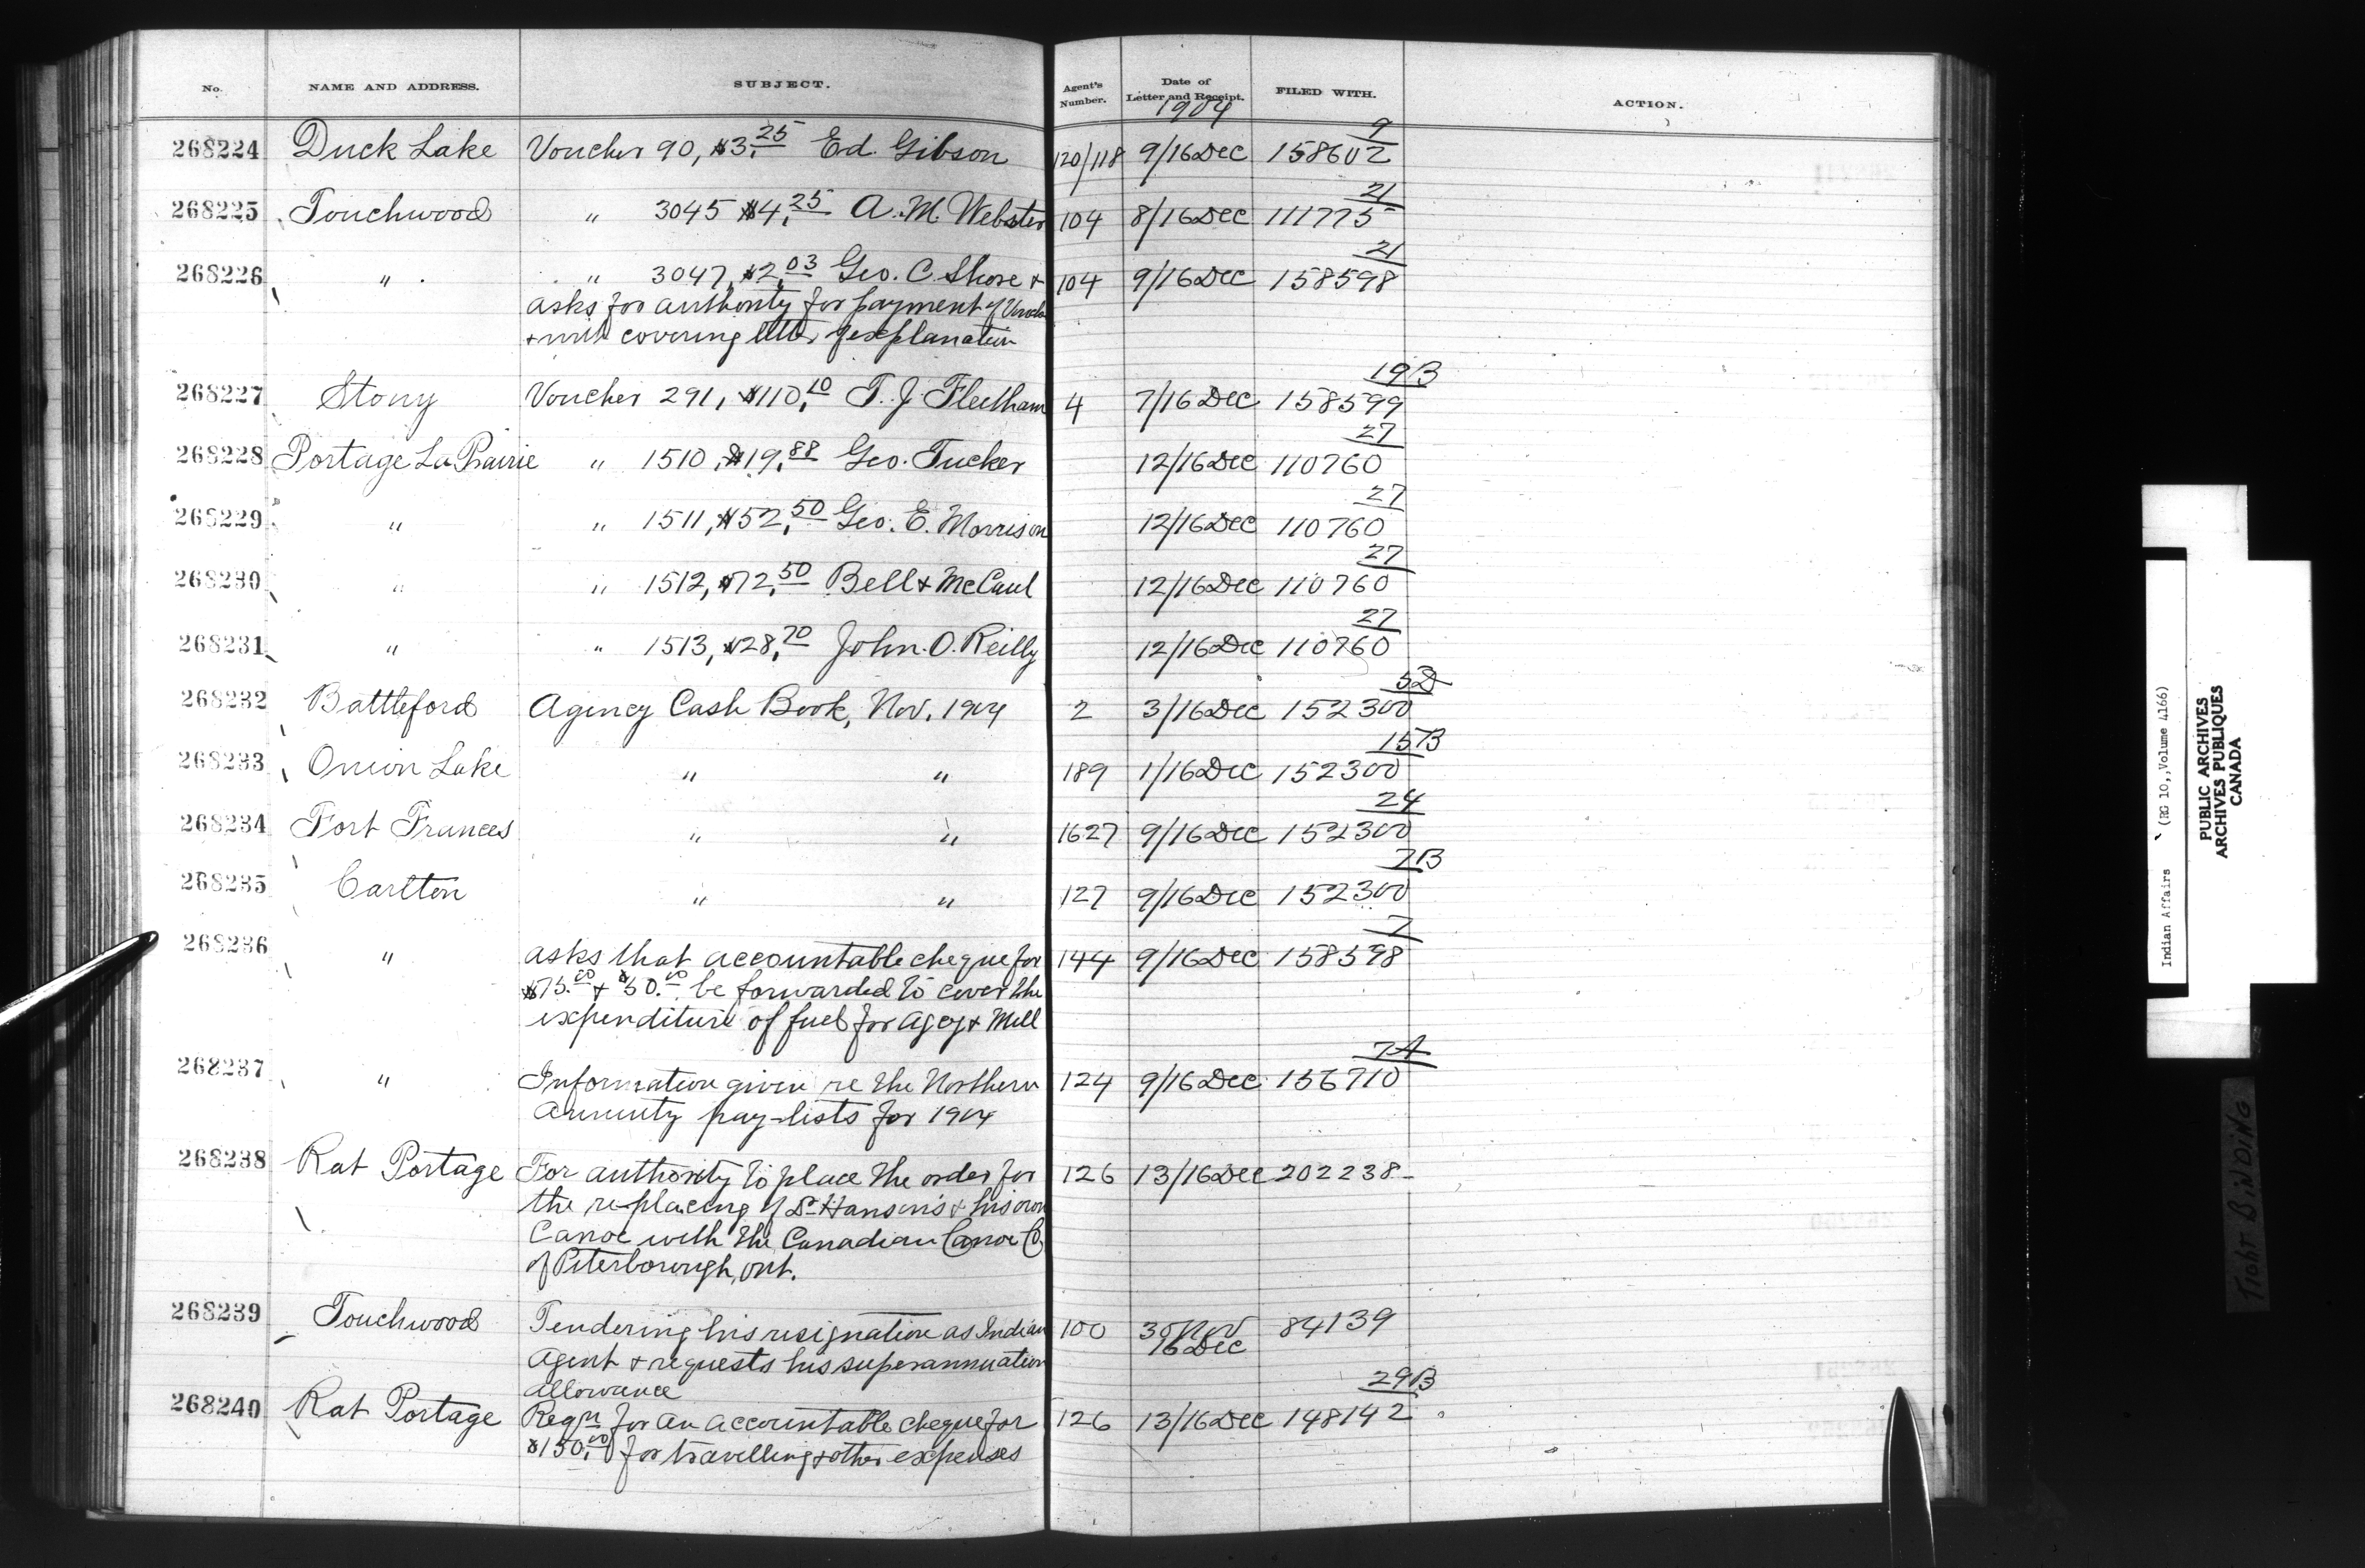 No. NAME AND ADDRESS. SUBJECT. Agent's Number. Date of Letter and Receipt. FILED WITH. ACTION.
1904
9
268224 Duck Lake Voucher 90, $3.25 Ed. Gibson 120/118 9/16 Dec 158602
21
268225 Touchwood " 3045 $4.25 A. M. Webster 104 8/16 Dec 111775
21
268226 " " 3047, $2.03 Geo. C. Shore + 104 9/16 Dec 158598
asks for authority for payment of
+ covering letter of explanation
19B
268227 Stony Voucher 291, $110.10 T. J. Fleetham 4 7/16 Dec 158599
27
268228 Portage La Prairie " 1510, $19.88 Geo. Tucker 12/16 Dec 110760
27
268229 " " 1511, $52.50 Geo. E. Morrison 12/16 Dec 110760
27
268230 " " 1512, $72.50 Bell + McCaul 12/16 Dec 110760
27
268231 " " 1513, $28.70 John. O. Reilly 12/16 Dec 110760
5D
268232 Battleford Agency Cash Book, Nov. 1904 2 3/16 Dec 152300
15B
268233 Onion Lake " " 189 1/16 Dec 152300
24
268234 Fort Frances " " 1627 9/16 Dec 152300
7B
268235 Carlton " " 127 9/16 Dec 152300
7
268236 " asks that accountable cheque for 144 9/16 Dec 158598
$75.00 + $50.00 be forwarded to cover the
expenditure of fuel for Agcy + Mill
7A
268237 " Information given re the Northern 124 9/16 Dec 156710
annuity pay-lists for 1904
268238 Rat Portage For authority to place the order for 126 13/16 Dec 202238-
the replacing of Dr Hanson's + his own
Canoe with the Canadian Canoe Co
of Peterborough, Ont.
268239 Touchwood Tendering his resignation as Indian 100 30 Nov 84139
16 Dec
Agent + requests his superannuation
allowance
29B
268240 Rat Portage Reqn for an accountable cheque for 126 13/16 Dec 148142
$150.00 for travelling + other expenses
Indian Affairs (RG 10, Volume 4166)
PUBLIC ARCHIVES
ARCHIVES PUBLIQUES
CANADA
TIGHT BINDING